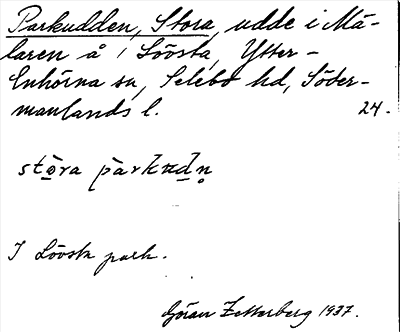 Parkudden, Stora, udde i Mä-
laren å / Lövsta, Ytter-
Enhörna sn, Selebo hd, Söder-
manlands l. 24.
sto̱ra parkud̠n̥
I Lövsta park.
Göran Zetterberg 1937.